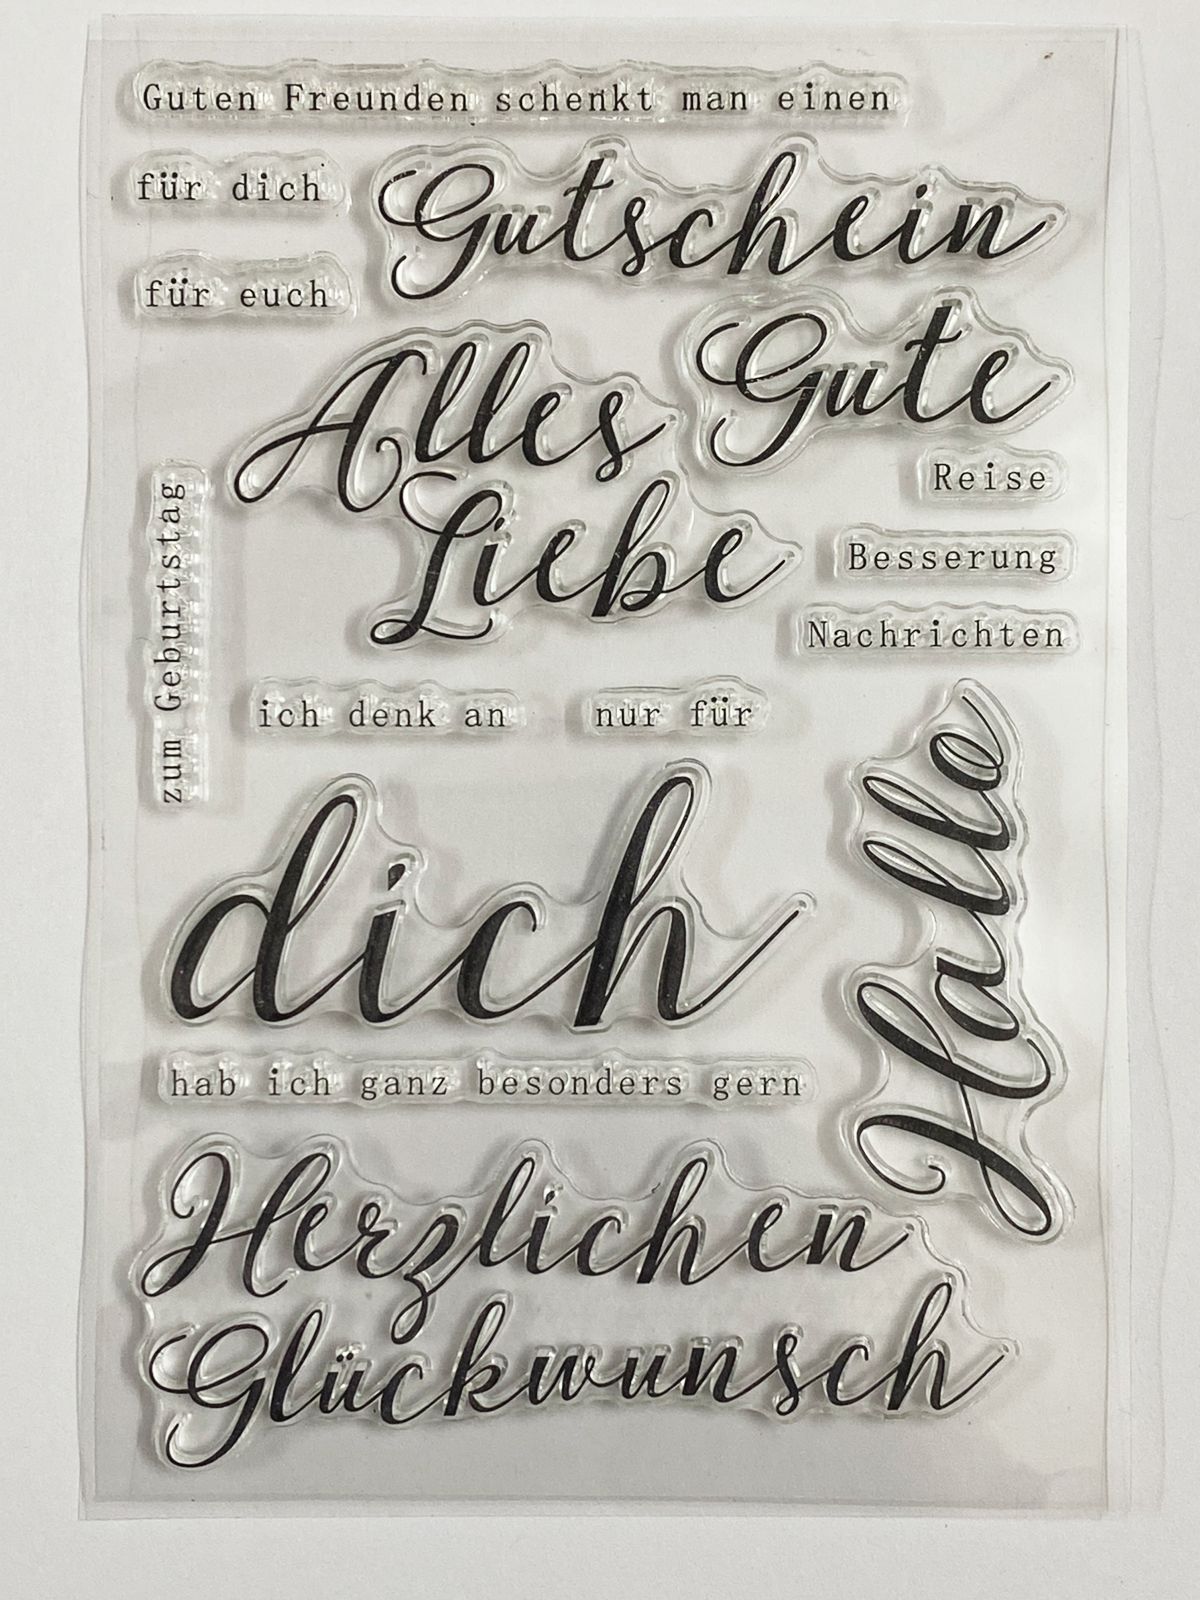 Guten Freunden schenkt man einen
für dich
Gutschein
für euch
Alles
Gute
Liebe
Reise
Besserung
Nachrichten
zum Geburtstag
ich denk an
nur für
dich
Hallle
hab ich ganz besonders gern
Herzlichen
Glückwunsch